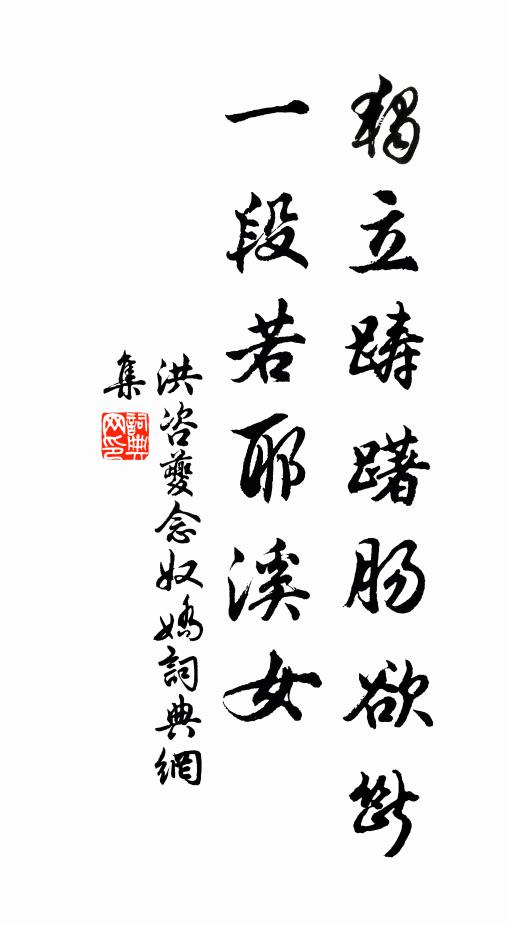 獨立躊躇肠欲斷
一段若耶溪女
洪咨夔念奴嬌詞典網
集
詞典网印